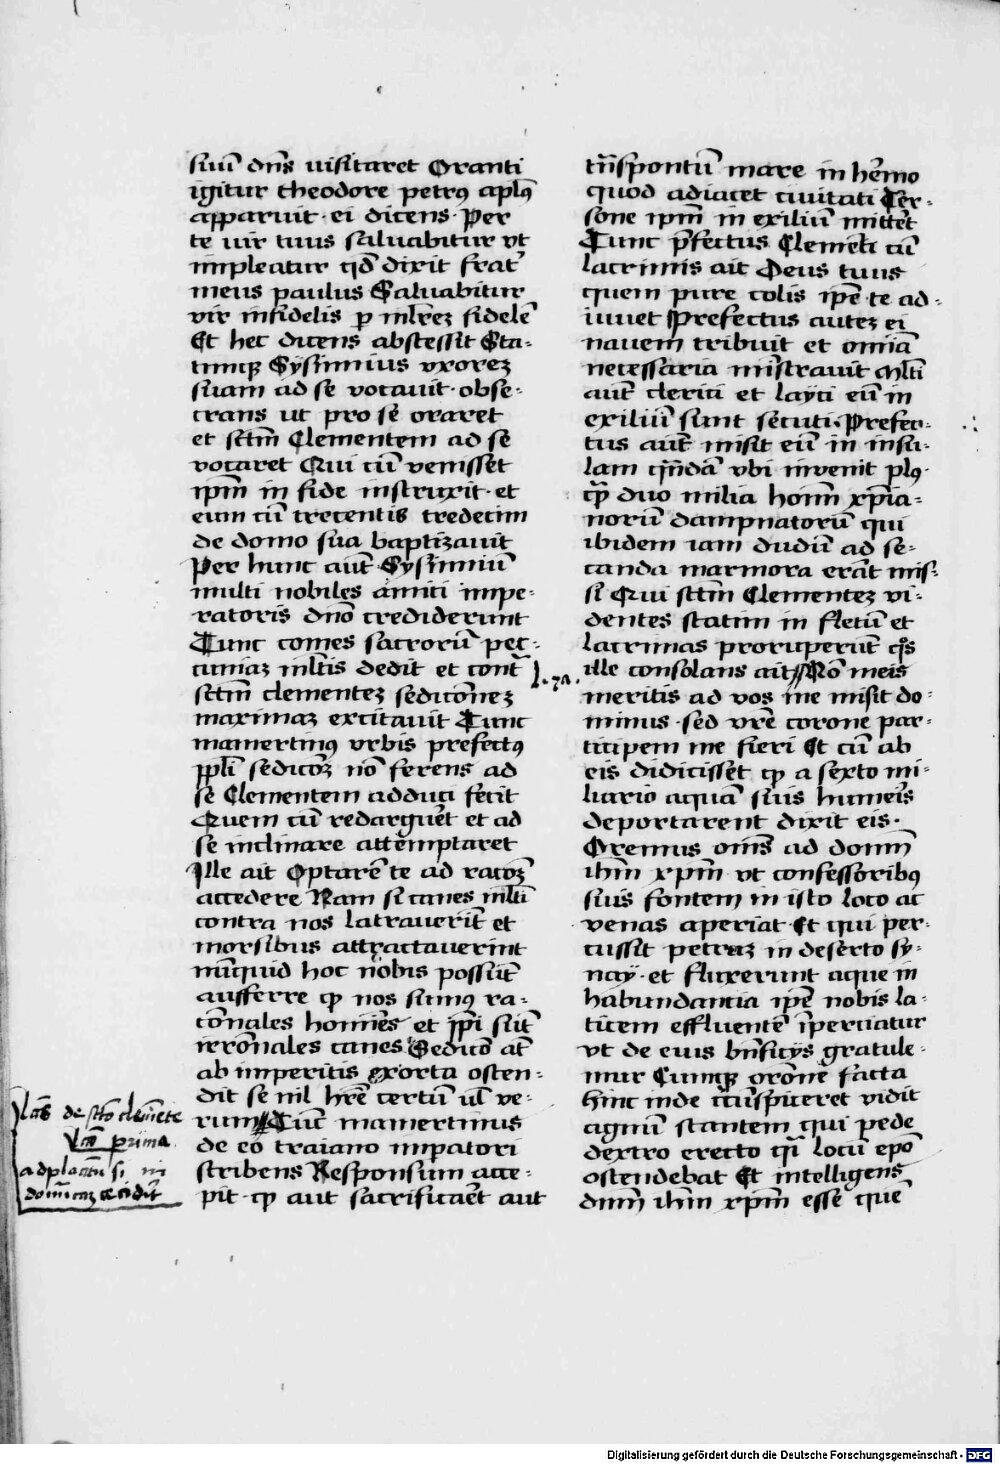 suū dn̄s uisitaret Oranti
igitur theodore petrꝰ ap̄lꝰ
apparuit · ei dicens · Per
te uir tuus saluabitur vt
impleatur qd̄ dixit frat̄
meus paulus Saluabitur
vir infidelis ꝑ ml̄rēꝫ fidelē
Et hec dicens abscessit Sta-
timqꝫ Sysinnius vxoreꝫ
suam ad se vocauit · obse-
crans ut pro se oraret
et sc̄tm̄ Clementem ad se
vocaret Qui cū venisset
ip̄m in fide instruxit · et
eum cū trecentis tredecim
de domo sua baptizauit
Per hunc aūt Sysinniū
multi nobiles amici impe-
ratoris dn̄o crediderunt
Tunc comes sacrorū pec-
cuniaꝫ ml̄tis dedit et cont̄
sc̄tm̄ clementeꝫ sedicōneꝫ
maximaꝫ excitauit Tunc
mamertinꝰ vrbis prefectꝰ
pp̄li sedicōꝫ nō ferens ad
se Clementem adduci fecit
Quem cū redarguēt et ad
se inclinare attemptaret
Ille ait Optarē te ad racōꝫ
accedere Nam si canes ml̄ti
contra nos latrauerīt et
morsibus attractauerint
nūquid hoc nobis possūt
aufferre qꝫ nos sumꝰ ra-
cōnales homīes et ip̄i sūt
irrōnales canes Sedicō at̄
ab imperitis exorta osten-
dit se nil hr̄e certum ul̄ ve-
rum Tūc mamertinus
de eo traiano impatori
scribens Responsum acce-
pit · qꝫ aut sacrificaēt aut
lc̄ōs de sc̄to clemēte
lc̄ō prima
dominicaꝫ accidūt
tn̄spontū mare in hēmo
quod adiacet ciuitati Cer-
sone ip̄m in exiliū mittēt
Tunc p̄fectus Clemēti cū
lacrimis ait Deus tuus
quem pure colis ip̄e te ad-
iuuet Prefectus auteꝫ ei
nauem tribuit et omīa
necessaria mīstrauit Ml̄ti
aūt clerici et layci eū in
exiliū sunt secuti · Prefec-
tus aūt misit eū in insu-
lam qn̄dā vbi inuenit plꝰ
qꝫ duo milia homī xp̄ia-
norū dampnatorū qui
ibidem iam dudū ad se-
canda marmora erāt mis-
si Qui sc̄tm̄ Clementeꝫ vi-
dentes statim in fletū et
lacrimas proruperūt q̄s
ille consolans ait Nō meis
meritis ad vos me misit do-
minus · sed vr̄e corone par-
ticipem me fieri Et cū ab
eis didicisset qꝫ a sexto mi-
liario aquā suis humeīs
deportarent dixit eis ·
Oremus om̄s ad domī
ihm̄ xp̄m vt confessoribꝰ
suis fontem in isto loco ac
venas aperiat · Et qui per-
cussit petraꝫ in deserto sy-
nay · et fluxerunt aque in
habundancia ip̄e nobis la-
ticem effluentē īperciatur
vt de euis bn̄ficijs gratule-
mur Cumqꝫ orōne facta
hinc inde cc̄ūspiceret vidit
agnū stantem qui pede
dextro erecto q̄i locū ep̄o
ostendebat Et intelligens
dnm̄ ihm̄ xp̄m esse quē
Digitalisierung gefördert durch die Deutsche Forschungsgemeinschaft - DFG